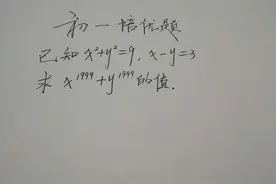 初一培优题
已知 x²+y²=9, x-y=3
求 x¹⁹⁹⁹+y¹⁹⁹⁹的值.